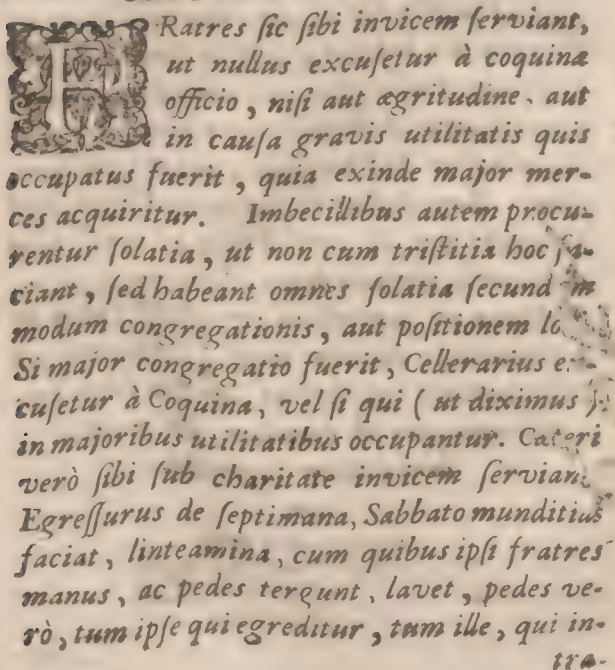 FRatres ſic ſibi invicem ſerviant,
ut nullus excuſetur à coquinæ
officio, niſi aut ægritudine, aut
in cauſa gravis utilitatis quis
occupatus fuerit, quia exinde major mer-
ces acquiritur. Imbecillibus autem procu-
rentur ſolatia, ut non cum triſtitia hoc fa-
ciant, ſed habeant omnes ſolatia ſecund m
modum congregationis, aut poſitionem lo
Si major congregatio fuerit, Cellerarius e
cuſetur à Coquina, vel ſi qui (ut diximus)
in majoribus utilitatibus occupantur. Cæteri
verò ſibi ſub charitate invicem ſervian
Egreſſurus de ſeptimana, Sabbato munditias
faciat, linteamina, cum quibus ipſi fratres
manus, ac pedes tergunt, lavet, pedes ve-
rò, tum ipſe qui egreditur, tum ille, qui in-
tra-